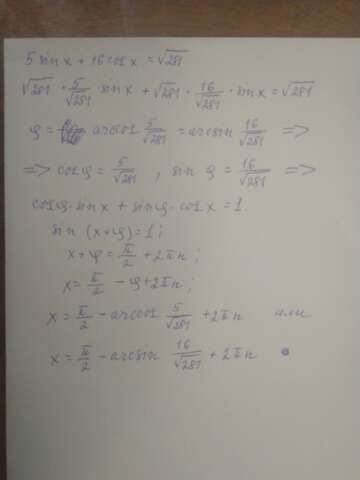 5 sin x + 16 cos x = √281
√281 · 5/√281 · sin x + √281 · 16/√281 · sin x = √281
φ = arccos 5/√281 = arcsin 16/√281 =>
=> cos φ = 5/√281 , sin φ = 16/√281 =>
cos φ · sin x + sin φ · cos x = 1.
sin (x + φ) = 1 ;
x + φ = π/2 + 2πn ;
x = π/2 - φ + 2πn ;
x = π/2 - arccos 5/√281 + 2πn или
x = π/2 - arcsin 16/√281 + 2πn